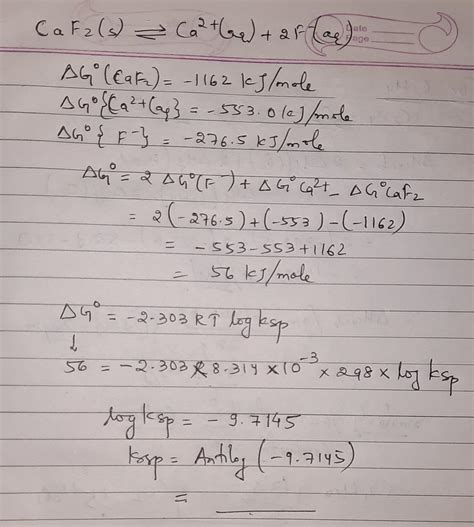 CaF2(s) ⇌ Ca²⁺(aq) + 2F⁻(aq)
Date
Page
ΔG°(CaF₂) = -1162 kJ/mole
ΔG°{Ca²⁺(aq} = -553.0 kJ/mole
ΔG°{F⁻} = -276.5 kJ/mole
ΔG° = 2 ΔG°(F⁻) + ΔG°Ca²⁺ - ΔG°CaF₂
= 2(-276.5) + (-553) - (-1162)
= -553-553+1162
= 56 kJ/mole
ΔG° = -2.303 RT log ksp
↓
56 = -2.303 × 8.314 × 10⁻³ × 298 × log ksp
log ksp = -9.7145
ksp = Antilog (-9.7145)
=